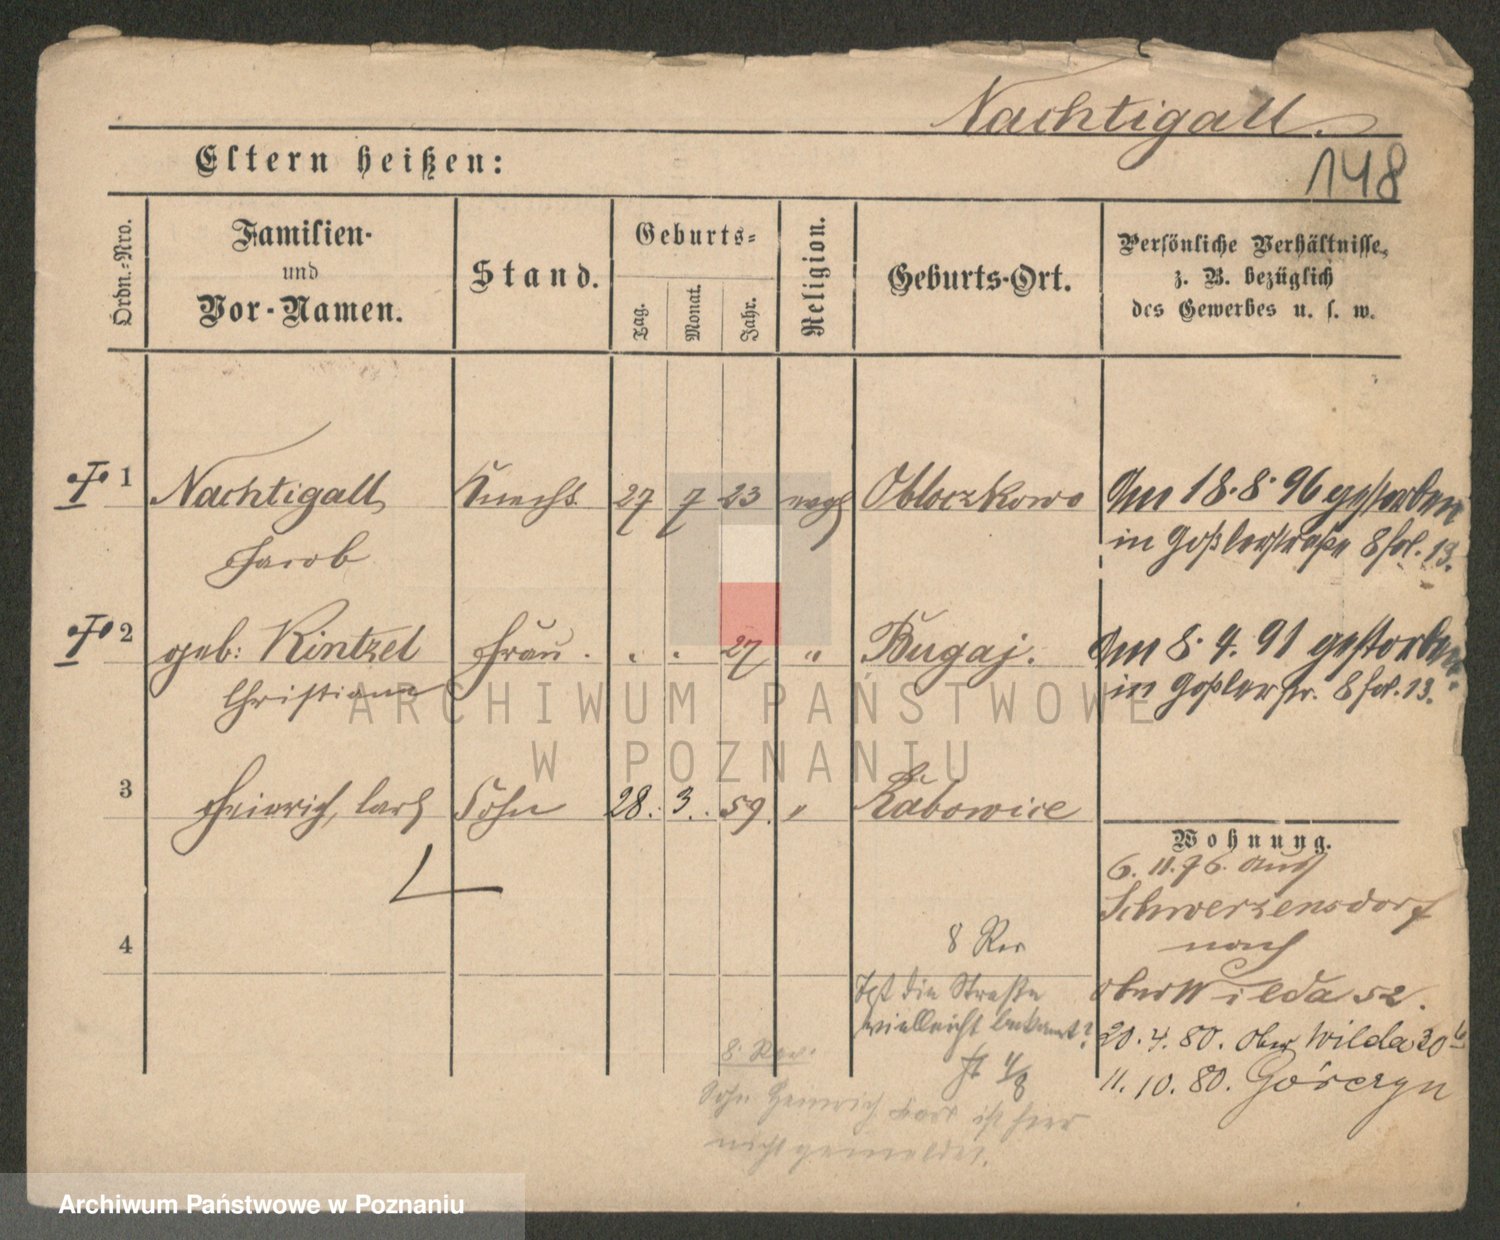 Nachtigall.
148
Eltern heißen:
Ordn.-Nro.
Familien-
und
Vor-Namen.
Stand.
Geburts-
Tag.
Monat.
Jahr.
Religion.
Geburts-Ort.
Persönliche Verhältnisse,
z. B. bezüglich
des Gewerbes u. s. w.
1 Nachtigall Knecht 27 7 23 evgl Obloczkowo Am 18. 8. 96 gestorben
Jacob in Goßlerstraße 8 fol. 13.
2 geb: Kintzel Frau . . . 27 " Bugaj. Am 8. 4. 91 gestorben
Christiane in Goßlerstr. 8 fol. 13.
ARCHIWUM PAŃSTWOWE
W POZNANIU
3 Heinrich, Carl Sohn 28. 3. 59. " Rabowice
Wohnung.
6. 11. 76. aus
Schwersensdorf
nach
Ober Wilda 52.
20. 4. 80. Ober Wilda 30
11. 10. 80. Górczyn
4
8 Rev
Ist die Straße
vielleicht bekannt?
4/8
8. Rev.
Sohn Heinrich Carl ist hier
nicht gemeldet.
Archiwum Państwowe w Poznaniu